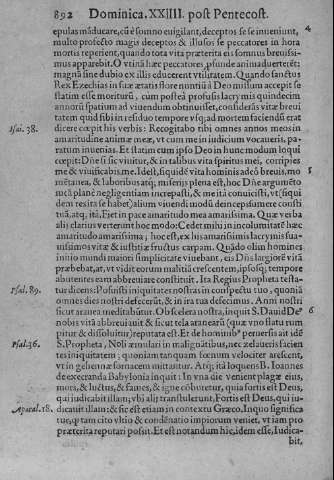 892 Dominica. XXIIII. post Pentecost.
epulas māducare, cū è somno euigilant, deceptos se se inueniunt, 4
multo profecto magis deceptos & illusos se peccatores in hora
mortis reperient, quando tota vita præterita eis somnus breuissi-
mus apparebit. O vtinā hæc peccatores, profunde animaduerterēt:
magnā sine dubio ex illis educerent vtilitatem. Quando sanctus
Rex Ezechias in suæ ætatis flore nuntiū à Deo missum accepit se
statim esse moriturū, cum posteà profusis lacrymis quindecim
annorū spatium ad viuendum obtinuisset, considerās vitæ breui
tatem quod sibi in residuo tempore vsq; ad mortem faciēdū erat
Isai. 38. dicere cœpit his verbis: Recogitabo tibi omnes annos meos in
amaritudine animæ meæ, vt cum me in iudicium vocaueris, pa-
ratum inuenias. Et statim cum ipso Deo in hunc modum loqui
cœpit: Dñe si sic viuitur, & in talibus vita spiritus mei, corripies
me & viuificabis me. Idest, siquidē vita hominis adeò breuis, mo 5
mētanea, & laboriosa
tuā, atq; itā, Fiet in pace amaritudo mea amarissima. Quæ verba
alij clarius verterunt hoc modo: Cedet mihi in incolumitatē hæc
amaritudo amarissima; hoc est, ex his amarissimis lacrymis sua-
uissimos vitæ & iustitiæ fructus carpam. Quādo olim homines
initio mundi maiori simplicitate viuebant, eis Dñs largiorē vitā
præbebat, at, vt vidit eorum malitiā crescentem, ipsosq; tempore
abutentes eam abbreuiare constituit. Ita Regius Propheta testa-
Psal. 89. tur dicens: Posuisti iniquitates nostras in conspectu tuo, quoniā
omnes dies nostri defecerūt, & in ira tua defecimus. Anni nostri
sicut aranea meditabūtur. Ob scelera nostra, inquit S. Dauid De⁹ 6
nobis vitā abbreuiauit & sicut tela araneæ (quæ vno flatu rum
pitur & dissoluitur) reputata est. Et de hominib⁹ peruersis ait idē
Psal. 36. S. Propheta, Noli æmulari in malignātibus, nec zelaueris facien
tes iniquitatem; quoniam tanquam fœnum velociter arescent,
vt in gehennæ fornacem mittantur. Atq; itā loquens B. Ioannes
de execranda Babylonia inquit: In vna die venient plagæ eius,
mors, & luctus, & fames, & igne cōburetur, quia fortis est Deus,
qui iudicabit illam; vbi alij transtulerunt, Fortis est Deus, qui iu-
Apocal. 18. dicauit illam: & sic est etiam in contextu Græco. Inquo significa
tur, q; tam cito vltio & condēnatio impiorum veniet, vt iam pro
præterita reputari possit. Et est notandum hic, idem esse, Iudica-
bit,